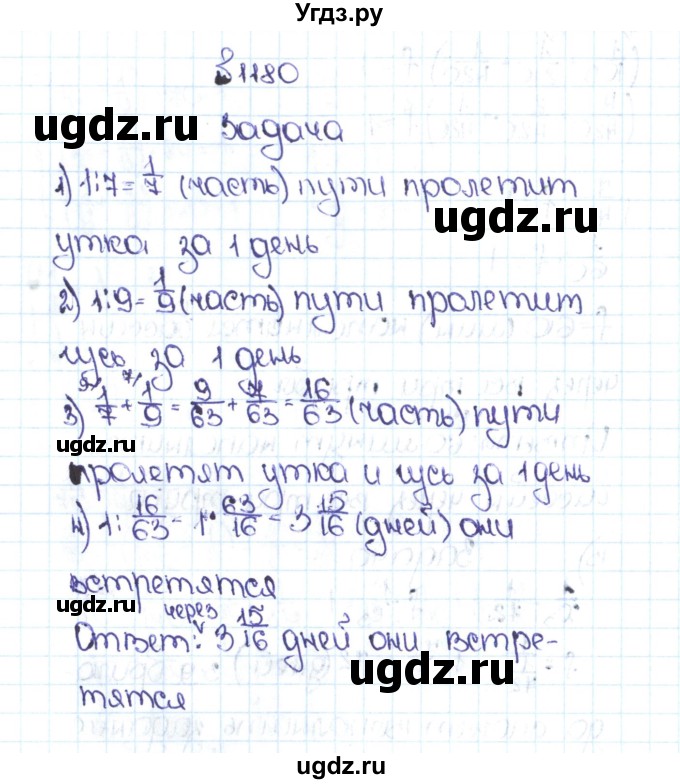 Угдз.ру
§1180
ugdz.ru задача
1) 1:7=1/7 (часть) пути пролетит
ugdz.ru
утка за 1 день
2) 1:9=1/9 (часть) пути пролетит
гусь за 1 день
9/ 7/
3) 1/7+1/9=9/63+7/63=16/63 (часть) пути
ugdz.ru
пролетят утка и гусь за 1 день
4) 1:16/63=1·63/16=3 15/16 (дней) они
ugdz.ru
встретятся
ugdz.ru через
Ответ: 3 15/16 дней они встре-
ugdz.ru
тятся
ugdz.ru